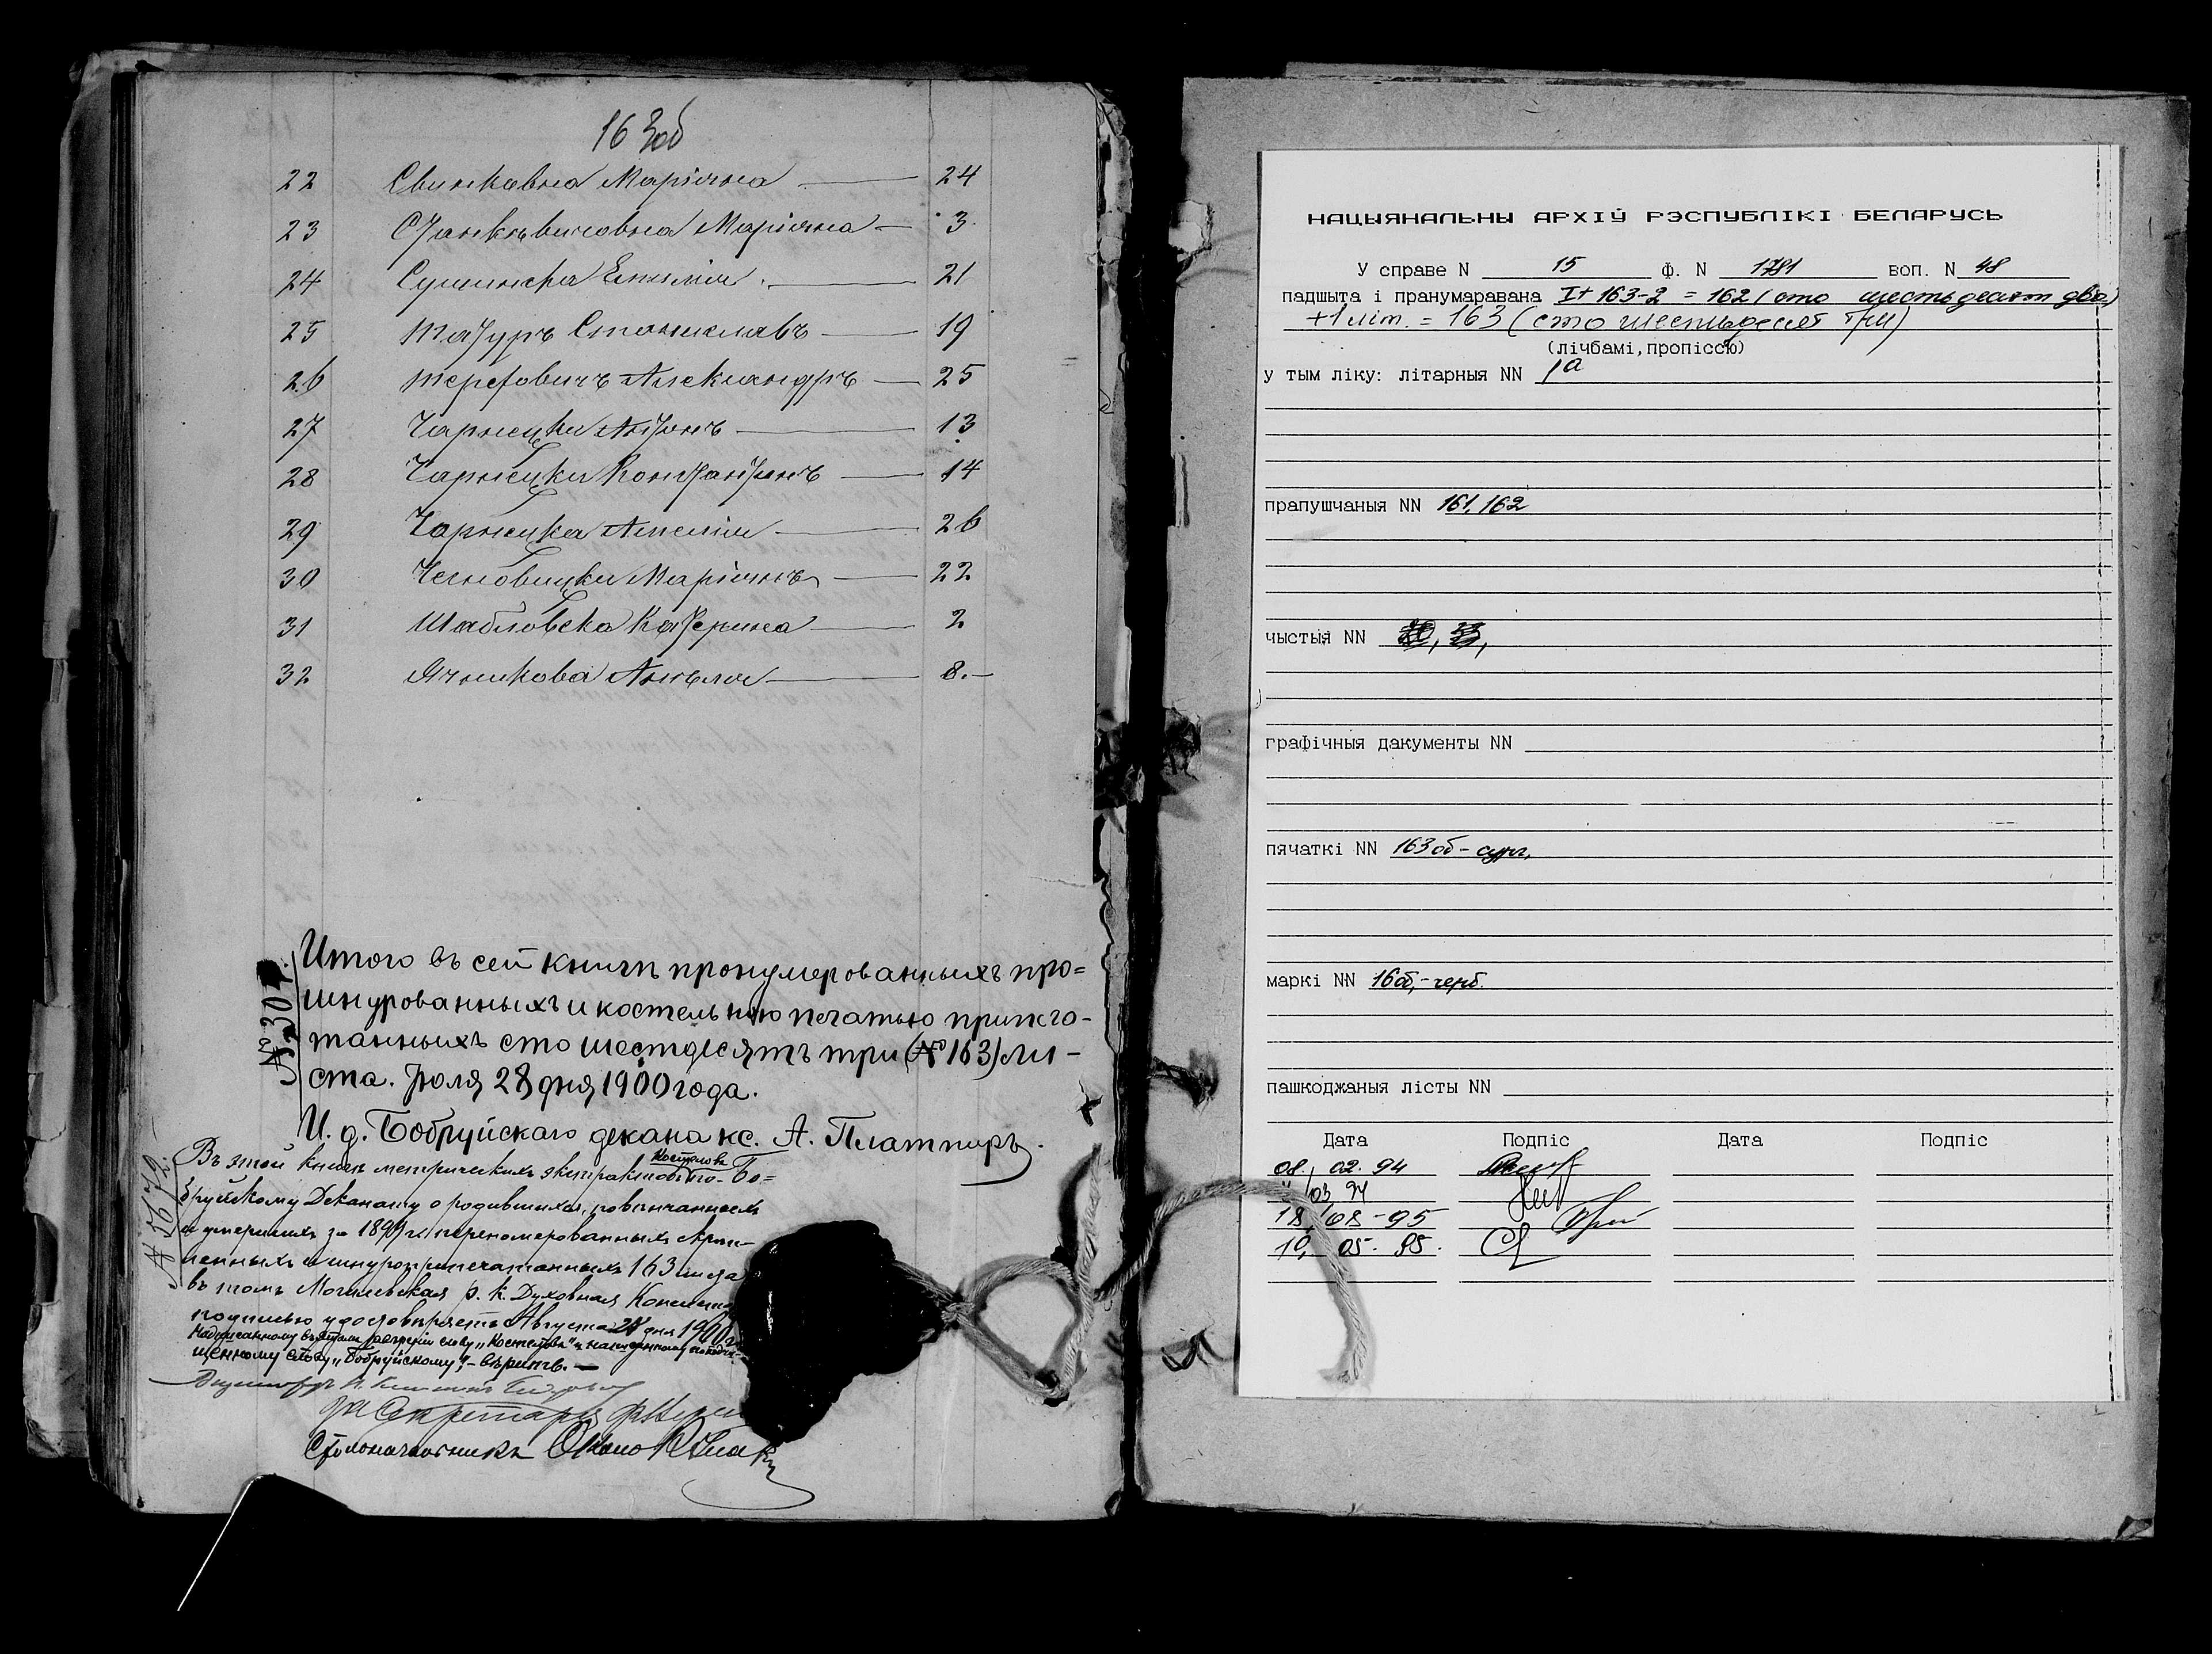 163об
22 Свинковна Маріянна 24
23 Станкѣвичовна Маріянна 3
24 Сушинска Емилія 21
25 Мазуръ Станиславъ 19
26 Терезовичъ Александръ 25
27 Чарнецки Антонъ 13
28 Чарнецки Константинъ 14
29 Чарнецка Амелія 26
30 Чехновицки Маріянъ 22
31 Шабловска Катерина 2
32 Ячникова Анѣля 8.
№ 304.
Итого въ сей книгѣ пронумерованныхъ про=
шнурованныхъ и костельною печатью припеча-
танныхъ сто шестдесятъ три (№ 163) ли-
ста. Іюля 28 дня 1900 года.
И. д. Бобруйскаго декана кс. А. Платпиръ.
№ 5672.
Въ этой книгѣ метрическихъ экстрактовъ костеловъ по Бо=
бруйскому Деканату о родившихся, повѣнчанныхъ
и умершихъ за 1899 г. перенумерованныхъ
и шнуроприпечатанныхъ 163 листа
въ томъ Могилевская р. к. Духовная Консисто
подписью удостовѣряетъ Августа 28 дня 1900 г.
Надписанному въ строкѣ слову „Костеловъ" и
щенному слову „Бобруйскому", – вѣрить. —
За Секретаря
Столоначальникъ
НАЦЫЯНАЛЬНЫ АРХІЎ РЭСПУБЛІКІ БЕЛАРУСЬ
У справе N 15 ф. N 1781 воп. N 48
падшыта і пранумаравана I+163-2 = 162 (сто шестьдесят два)
+1 літ. = 163 (сто шестьдесят три)
(лічбамі, пропіссю)
у тым ліку: літарныя NN 1а
прапушчаныя NN 161, 162
чыстыя NN
графічныя дакументы NN
пячаткі NN 163об - сург.
маркі NN 16об, - герб.
пашкоджаныя лісты NN
Дата Подпіс Дата Подпіс
08. 02. 94
03 94
18, 08 - 95
10, 05. 98.